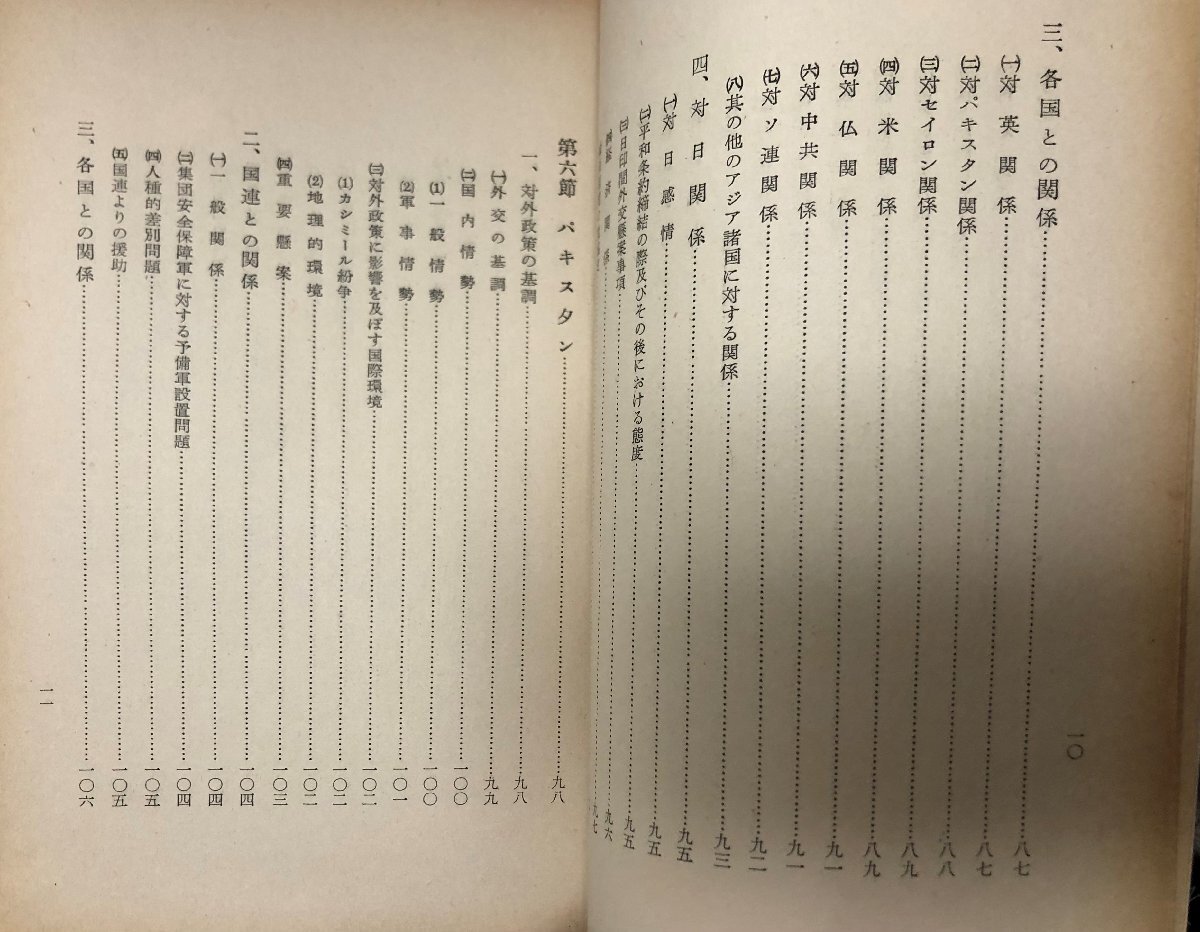 三、各国との関係……八七
㈠対英関係……八七
㈡対パキスタン関係……八八
㈢対セイロン関係……八九
㈣対米関係……八九
㈤対仏関係……九一
㈥対中共関係……九一
㈦対ソ連関係……九二
㈧其の他のアジア諸国に対する関係……九三
四、対日関係……九五
㈠対日感情……九五
㈡平和条約締結の際及びその後における態度……九五
㈢日印間外交懸案事項……九六
九七
一〇
第六節 パキスタン……九八
一、対外政策の基調……九八
㈠外交の基調……九九
㈡国内情勢……一〇〇
⑴一般情勢……一〇〇
⑵軍事情勢……一〇一
㈢対外政策に影響を及ぼす国際環境……一〇二
⑴カシミール紛争……一〇二
⑵地理的環境……一〇二
㈣重要懸案……一〇三
二、国連との関係……一〇四
㈠一般関係……一〇四
㈡集団安全保障軍に対する予備軍設置問題……一〇四
㈣人種的差別問題……一〇五
㈤国連よりの援助……一〇五
三、各国との関係……一〇六
一一